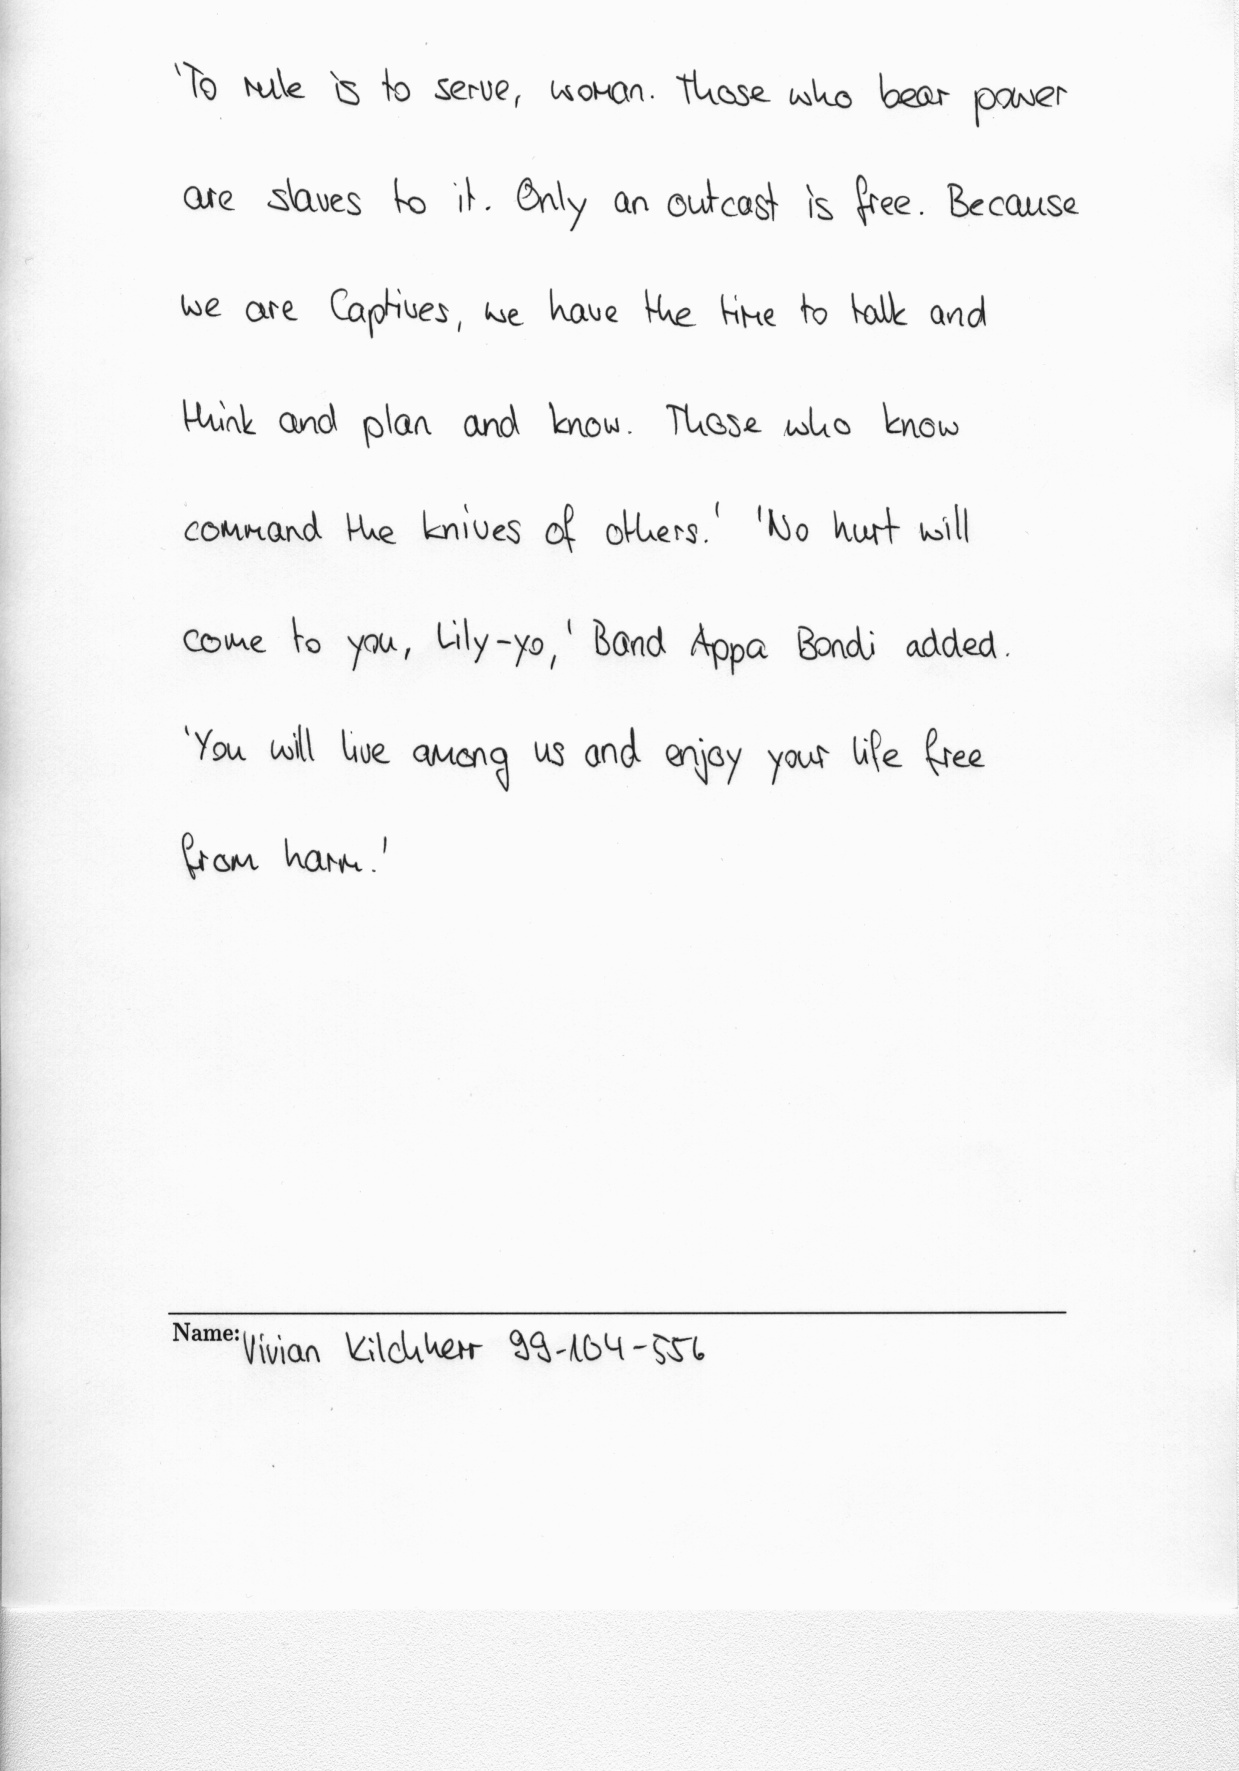 'To rule is to serve, woman. Those who bear power
are slaves to it. Only an outcast is free. Because
we are Captives, we have the time to talk and
think and plan and know. Those who know
command the knives of others.' 'No hurt will
come to you, Lily-yo,' Band Appa Bondi added.
'You will live among us and enjoy your life free
from harm.'
Name: Vivian Kilchherr 99-104-556